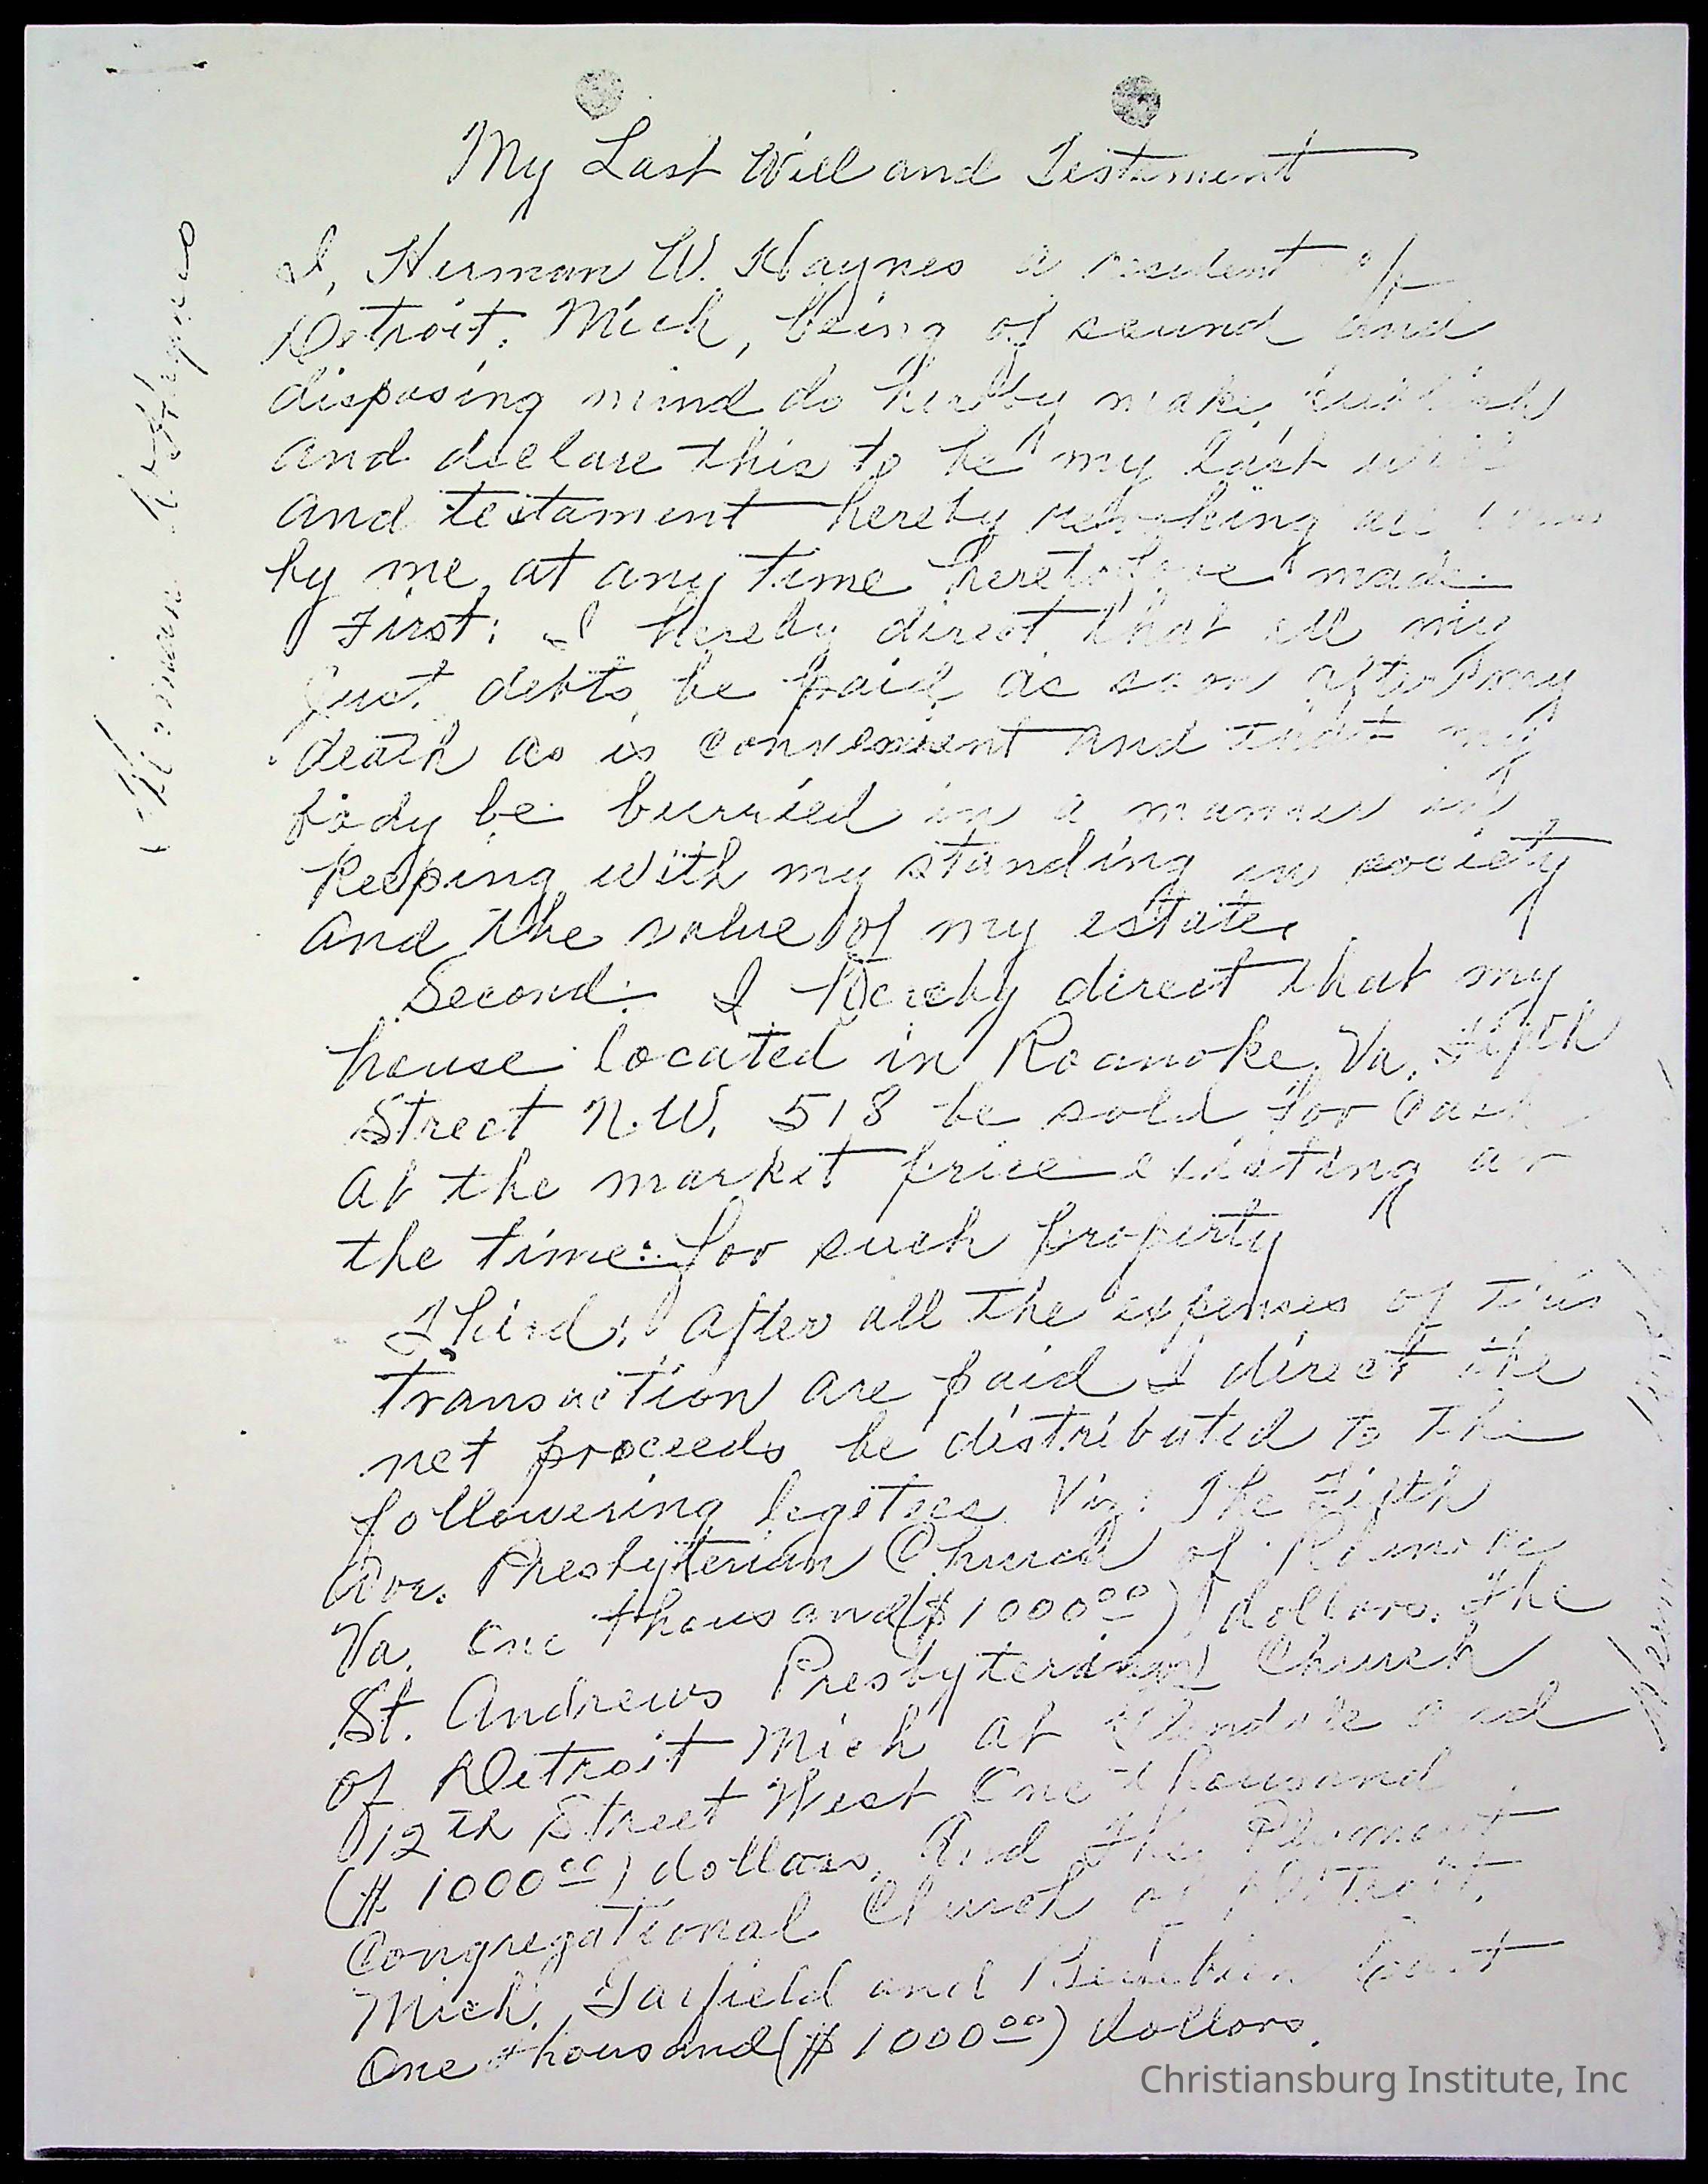 My Last Will and Testament
I, Herman W. Haynes a resident of
Detroit, Mich, being of sound and
disposing mind do hereby make, publish
and declare this to be my last will
and testament hereby revoking all
by me, at any time heretofore made.
First: I hereby direct that all my
just debts be paid as soon after my
death as is convenient and that my
body be burried in a manner in
keeping with my standing in society
and the value of my estate.
Second: I hereby direct that my
house located in Roanoke, Va. Fifth
Street N.W. 518 be sold for cash
at the market price existing at
the time: for such property
Third: After all the expenses of this
transaction are paid I direct the
net proceeds be distributed to the
Viz: The Fifth
Ave. Presbyterian Church of Roanoke
Va. One thousand ($1000.00) dollars. The
St. Andrews Presbyterian Church
of Detroit Mich at and
12th Street West One thousand
($1000.00) dollars, And the
Congregational Church of Detroit,
Mich. Garfield and
One thousand ($1000.00) dollars.
Herman W. Haynes
Christiansburg Institute, Inc